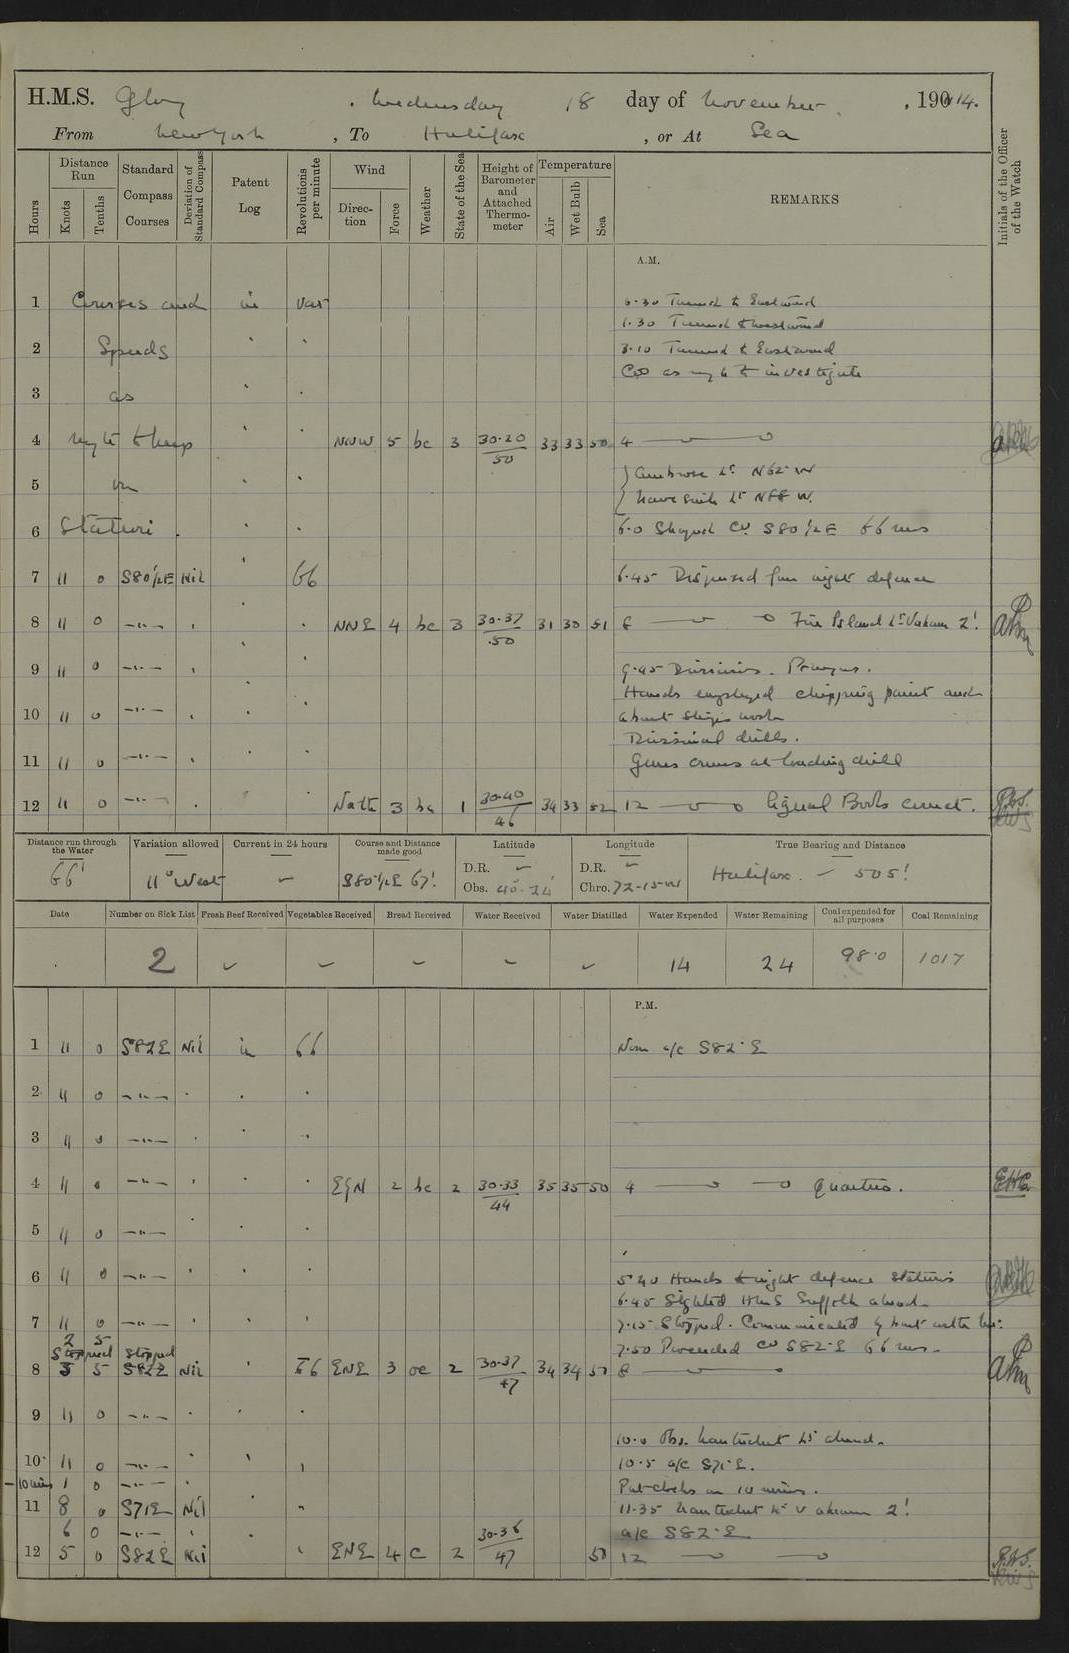 H.M.S. Glory . Wednesday 18 day of November , 1914.
From New York , To Halifax , or At Sea
Hours
Distance Run
Knots
Tenths
Standard Compass Courses
Deviation of Standard Compass
Patent Log
Revolutions per minute
Wind
Direction
Force
Weather
State of the Sea
Height of Barometer and Attached Thermometer
Temperature
Air
Wet Bulb
Sea
REMARKS
Initials of the Officer of the Watch
A.M.
1 Courses and in var
Turned to Eastward
1.30 Turned to westward
2 Speeds
3.10 Turned to Eastward
Co as to investigate
3 as
4 to keep NNW 5 bc 3 30.20 50 33 33 50 4
5 on
Ambrose Lt N62 W
Lt N88 W.
6 Station .
6.0 Shaped Co S80½E 66 revs
7 11 0 S80½E Nil 66
6.45 Dispersed from night defence
8 11 0 —"— NNE 4 bc 3 30.37 50 31 30 51 8 Fire Island Lt Vabeam 2'.
9 11 0 —"—
9.45 Divisions. Prayers.
Hands employed chipping paint and
10 11 0 —"—
about ships work
Divisional drills.
11 11 0 —"—
Guns crews at loading drill
12 11 0 —"— North 3 bc 1 30.40 46 34 33 52 12 Signal Books correct.
Distance run through the Water
66'
Variation allowed
11° West
Current in 24 hours
Course and Distance made good
S80½E 67'.
Latitude
D.R.
Obs. 40.24
Longitude
D.R.
Chro. 72-15 W
True Bearing and Distance
Halifax. 505'.
Date
Number on Sick List
Fresh Beef Received
Vegetables Received
Bread Received
Water Received
Water Distilled
Water Expended
Water Remaining
Coal expended for all purposes
Coal Remaining
2 14 24 98.0 1017
P.M.
1 11 0 S82E Nil in 66 Noon a/c S82°E
2 11 0 —"—
3 11 0 —"—
4 11 0 —"— 2 bc 2 30.33 44 35 35 50 4 Quarters.
5 11 0 —"—
6 11 0 —"—
5.40 Hands to night defence stations
6.45 Sighted HMS Suffolk ahead.
7 11 0 —"—
7.15 Stopped. Communicated by boat with her.
2 5
Stopped Stopped
7.50 Proceeded Co S82°E 66 revs.
8 3 5 S82E Nil 66 ENE 3 oc 2 30.37 47 34 34 50 8
9 11 0 —"—
10.0 Obs. Nantucket Lt ahead.
10 11 0 —"—
10.5 a/c S71°E.
-10 mins 1 0 —"—
Put clocks on 10 mins.
11 8 0 S71E Nil
11.35 Nantucket Lt V abeam 2'.
6 0 —"—
a/c S82°E
12 5 0 S82E Nil ENE 4 c 2 30.36 47 50 12